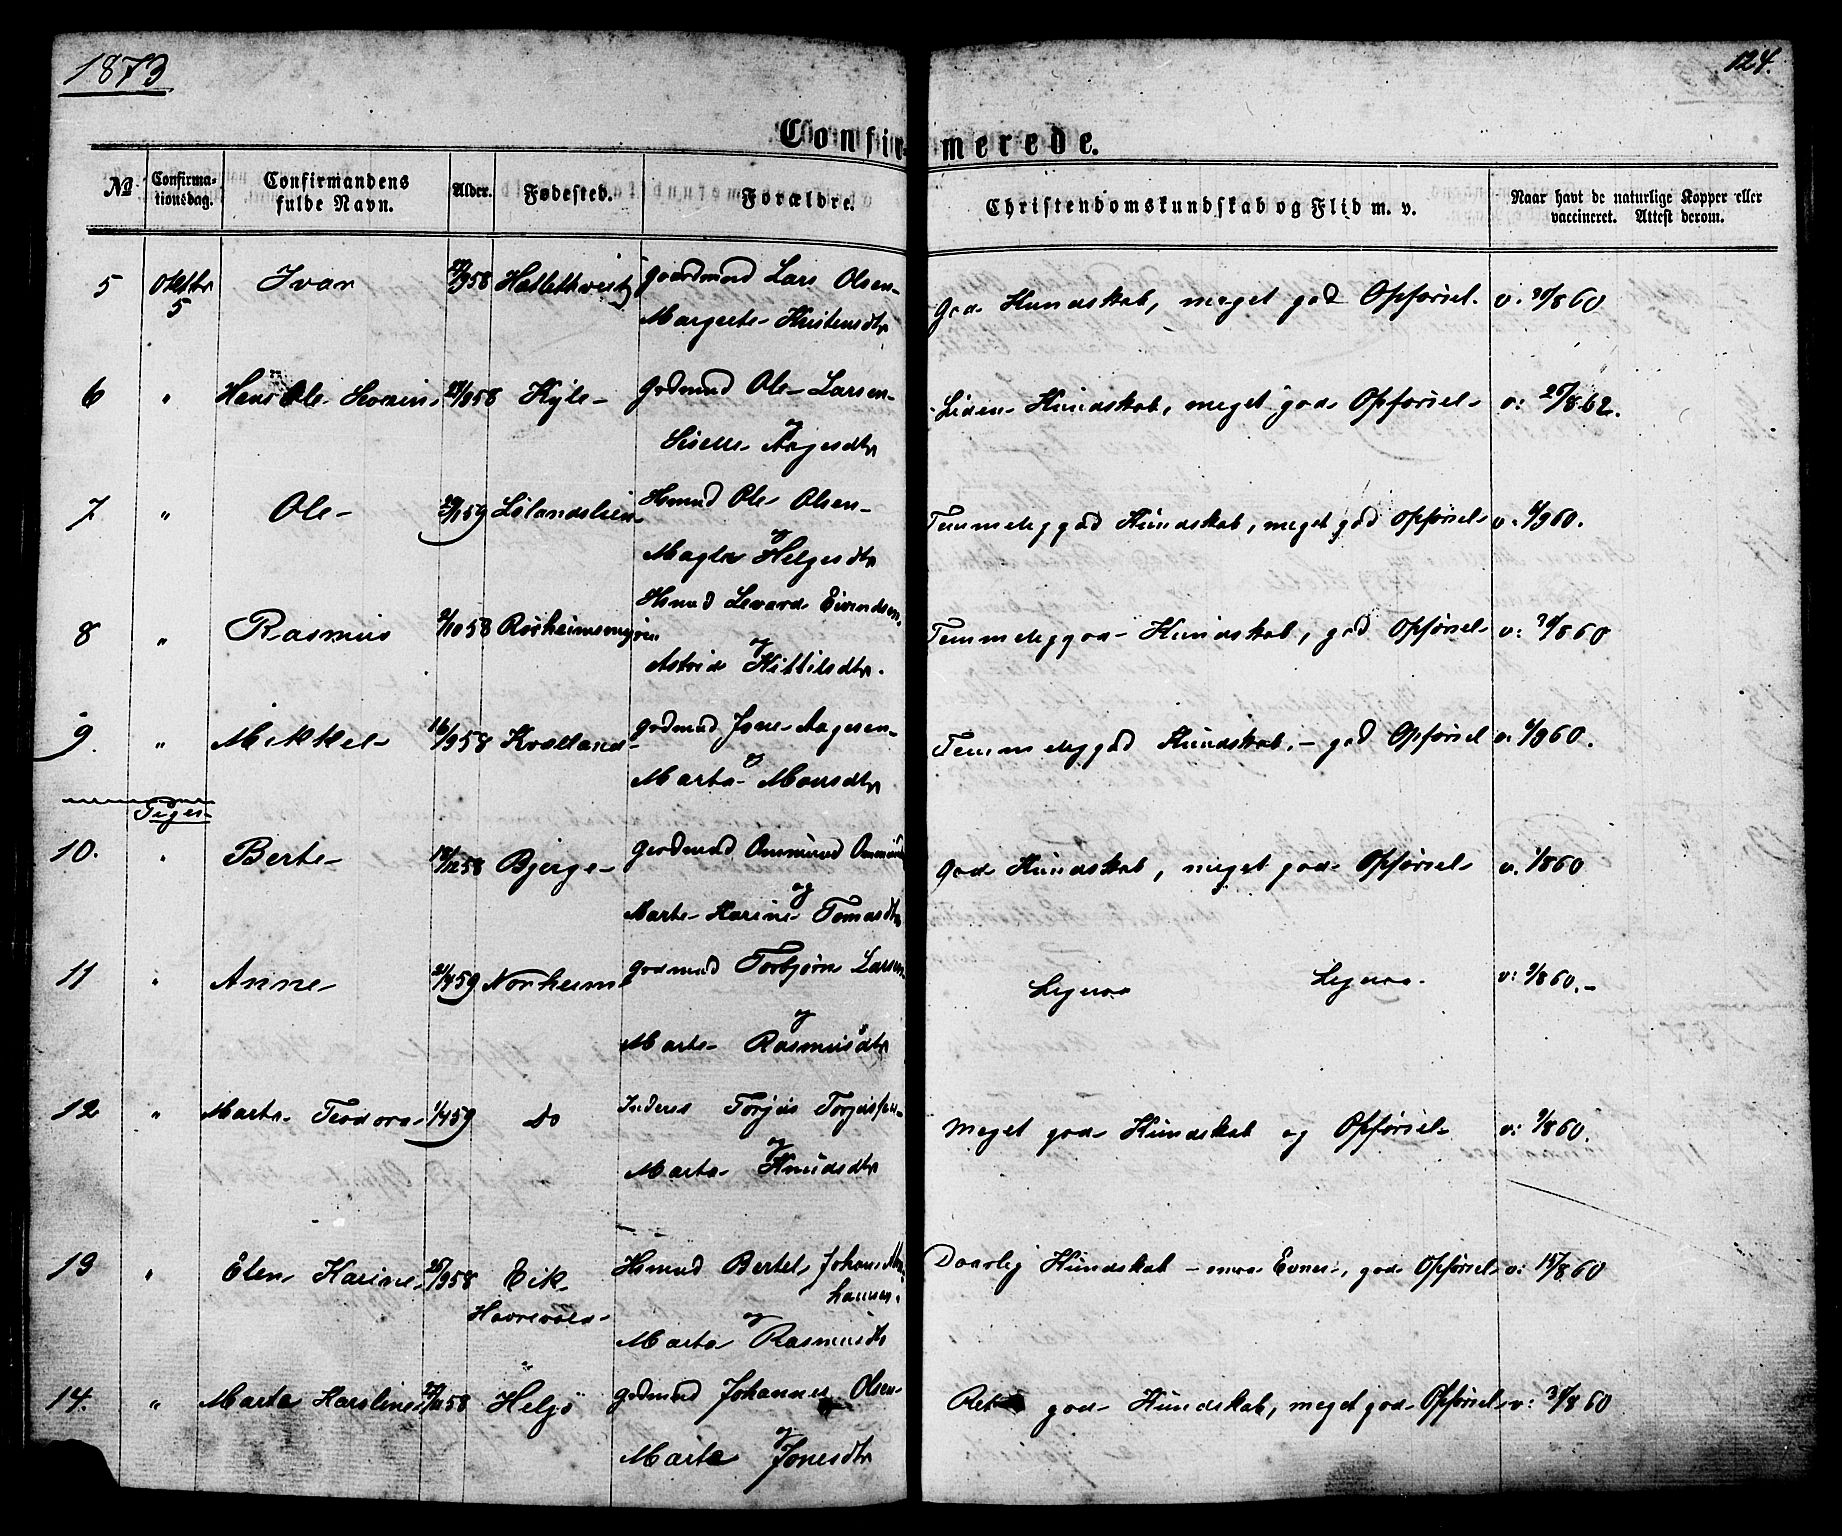 1873
124.
Confirmerede.
No
Confirma-
tionsdag.
Confirmandens
fulde Navn.
Alder.
Fødested.
Forældre.
Christendomskundskab og Flid m. v.
Naar havt de naturlige Kopper eller
vaccineret. Attest derom.
5 Oktbr 5 Ivar 958 Lars Olsen
Margrete
God Kundskab, meget god Opførsel. v. 30/8 60
6 " Hans Ole 958 Kyle Gdmnd Ole Larsen
og
Aagesdtr
Liden Kundskab, meget god Opførsel v: 25/8 62.
7 " Ole 159 Lølandslien Hsmnd Ole Olsen
og
Magla Helgesdtr
Temmelig god Kundskab, meget god Opførsel v. 4/9 60.
8 " Rasmus 2/10 58 Hsmnd Eivindsen
og
Astrid Kittilsdtr.
Temmelig god Kundskab, god Opførsel v: 30/8 60
9. " Mikkel 16/9 58 Gdmnd Jone Aagesen
og
Marta Monsdtr
Temmelig god Kundskab, god Opførsel v. 4/9 60.
Piger
10. " Berte 12 58 Bjerge Gaardmnd
og
Marte Karine Tomasdtr
God Kundskab, meget god Opførsel v. 1/8 60
11 " Anne 21/4 59 Norheim Gdmnd Torbjørn Larsen
og
Marte Rasmusdtr
Ligesaa Ligesaa. v: 9/8 60.-
12 " Marta Teodora 1/4 59 Do Inderst Torjus Torjussen
og
Marta Knudsdtr
Meget god Kundskab og Opførsel v: 9/8 60.
13 " Elen Karine 25/9 58 Eik Hsmnd Bertel
Marta og Rasmusdtr
Daarlig Kundskab - smaa Evner, god Opførsel v: 15/8 60
14. " Marta Karoline 58 Helgø Gdmnd Johannes Olsen
og
Marta Jonesdtr
Ret god Kundskab, meget god Opførsel v: 30/8 60